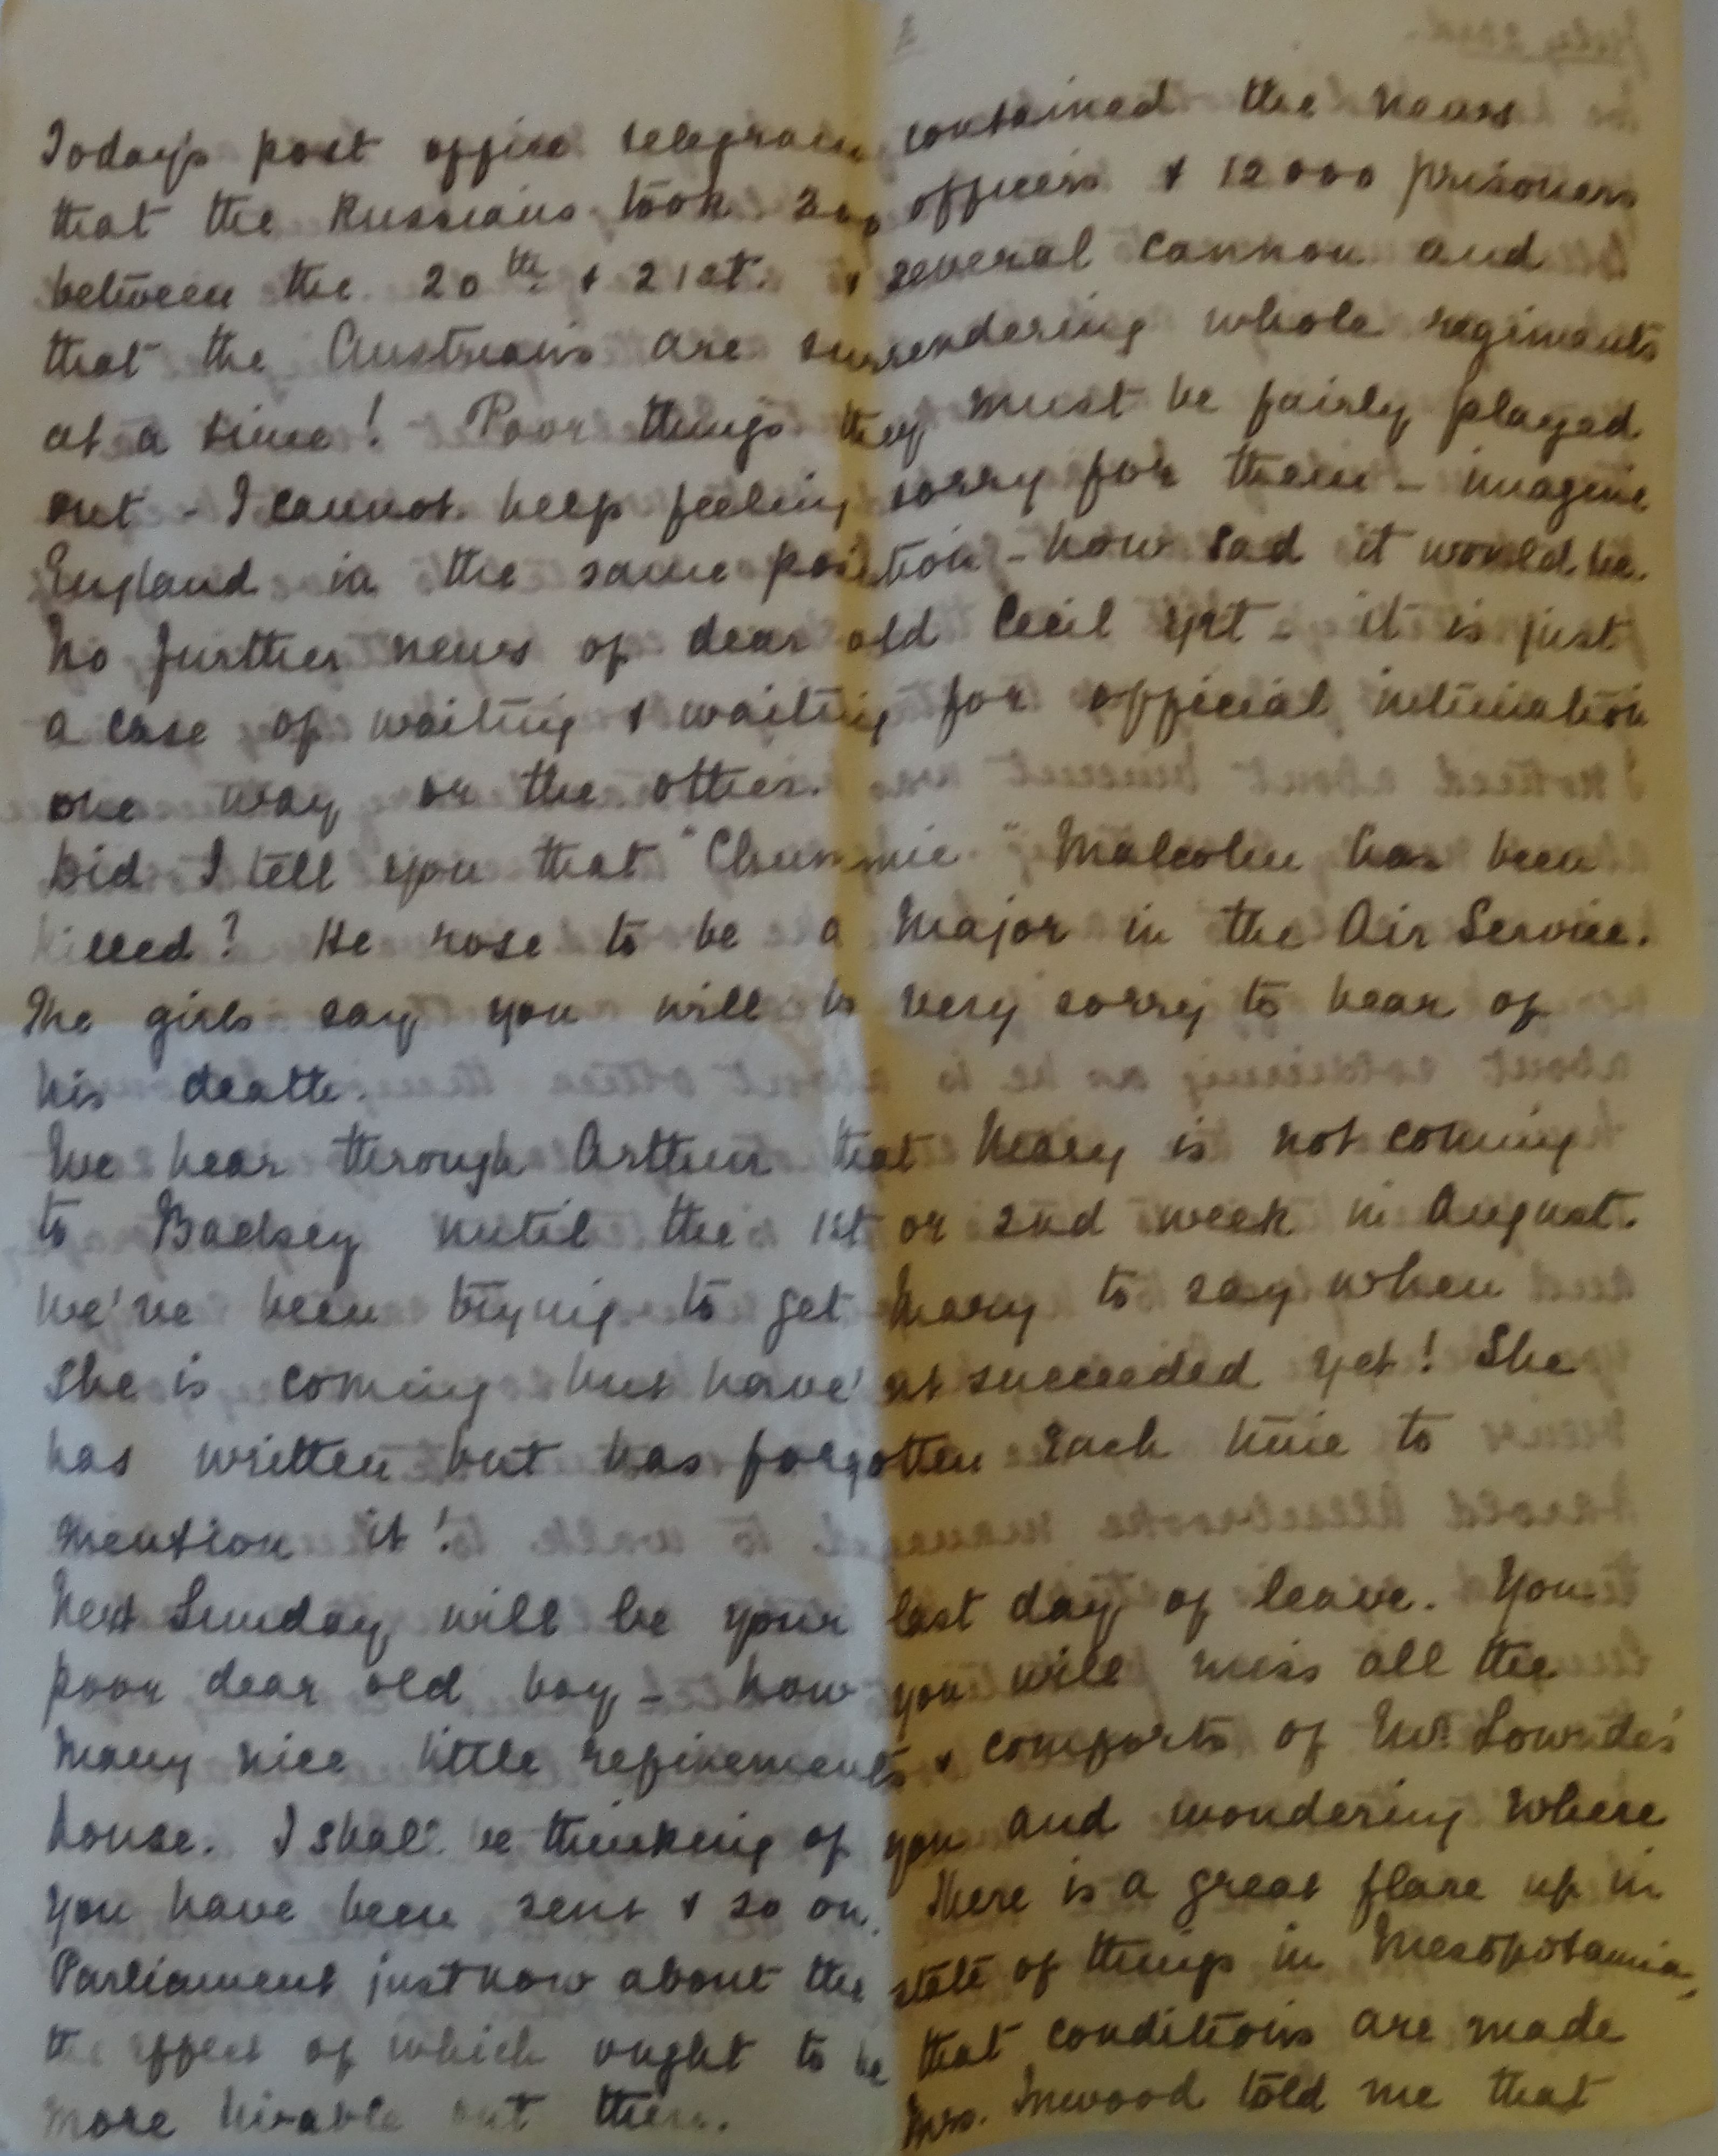 Today's post office telegram contained the news
that the Russians took 300 officers & 12000 prisoners
between the 20th & 21st. & several cannon and
that the Austrians are surrendering whole regiments
at a time! Poor things they must be fairly played
out - I cannot help feeling sorry for them - imagine
England in the same position - how sad it would be.
No further news of dear old Cecil yet - it is just
a case of waiting & waiting for official intimation
one way or the other.
Did I tell you that "Chummie" Malcolm has been
killed? He rose to be a Major in the Air Service.
The girls say you will be very sorry to hear of
his death.
We hear through Arthur that Mary is not coming
to Badsey until the 1st or 2nd week in August.
We've been trying to get Mary to say when
she is coming but have'nt succeeded yet! She
has written but has forgotten each time to
mention it!
Next Sunday will be your last day of leave. You
poor dear old boy - how you will miss all the
many nice little refinements & comforts of Mrs Lowndes'
house. I shall be thinking of you and wondering where
you have been sent & so on. There is a great flare up in
Parliament just now about the state of things in Mesopotamia,
the effect of which ought to be that conditions are made
more livable out there. Mrs. Inwood told me that